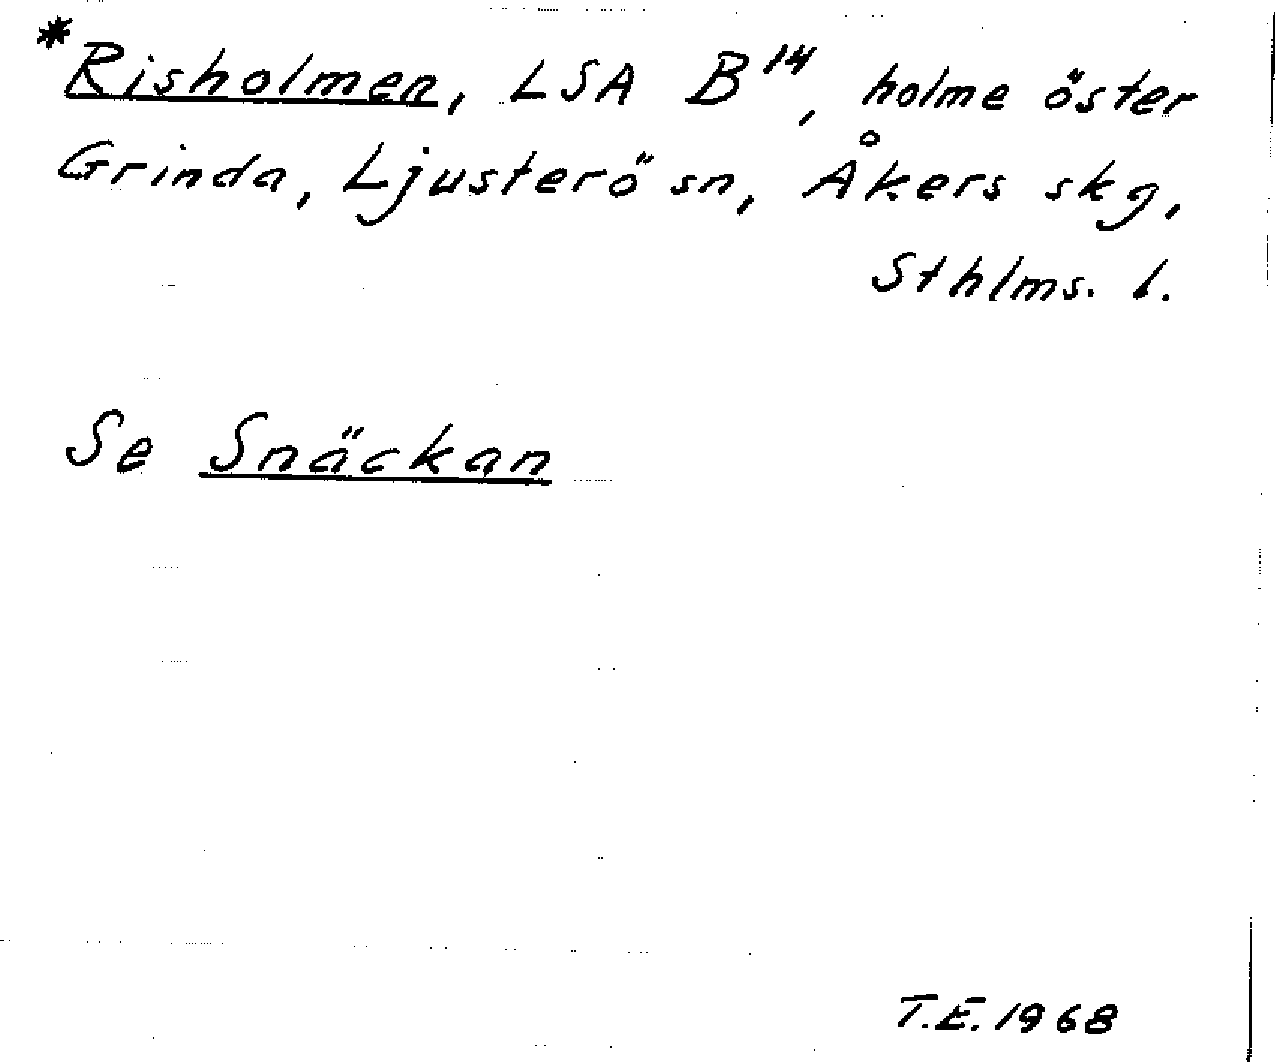 *Risholmen, LSA B¹⁴, holme öster
Grinda, Ljusterö sn, Åkers skg,
Sthlms. l.
Se Snäckan
T.E. 1968